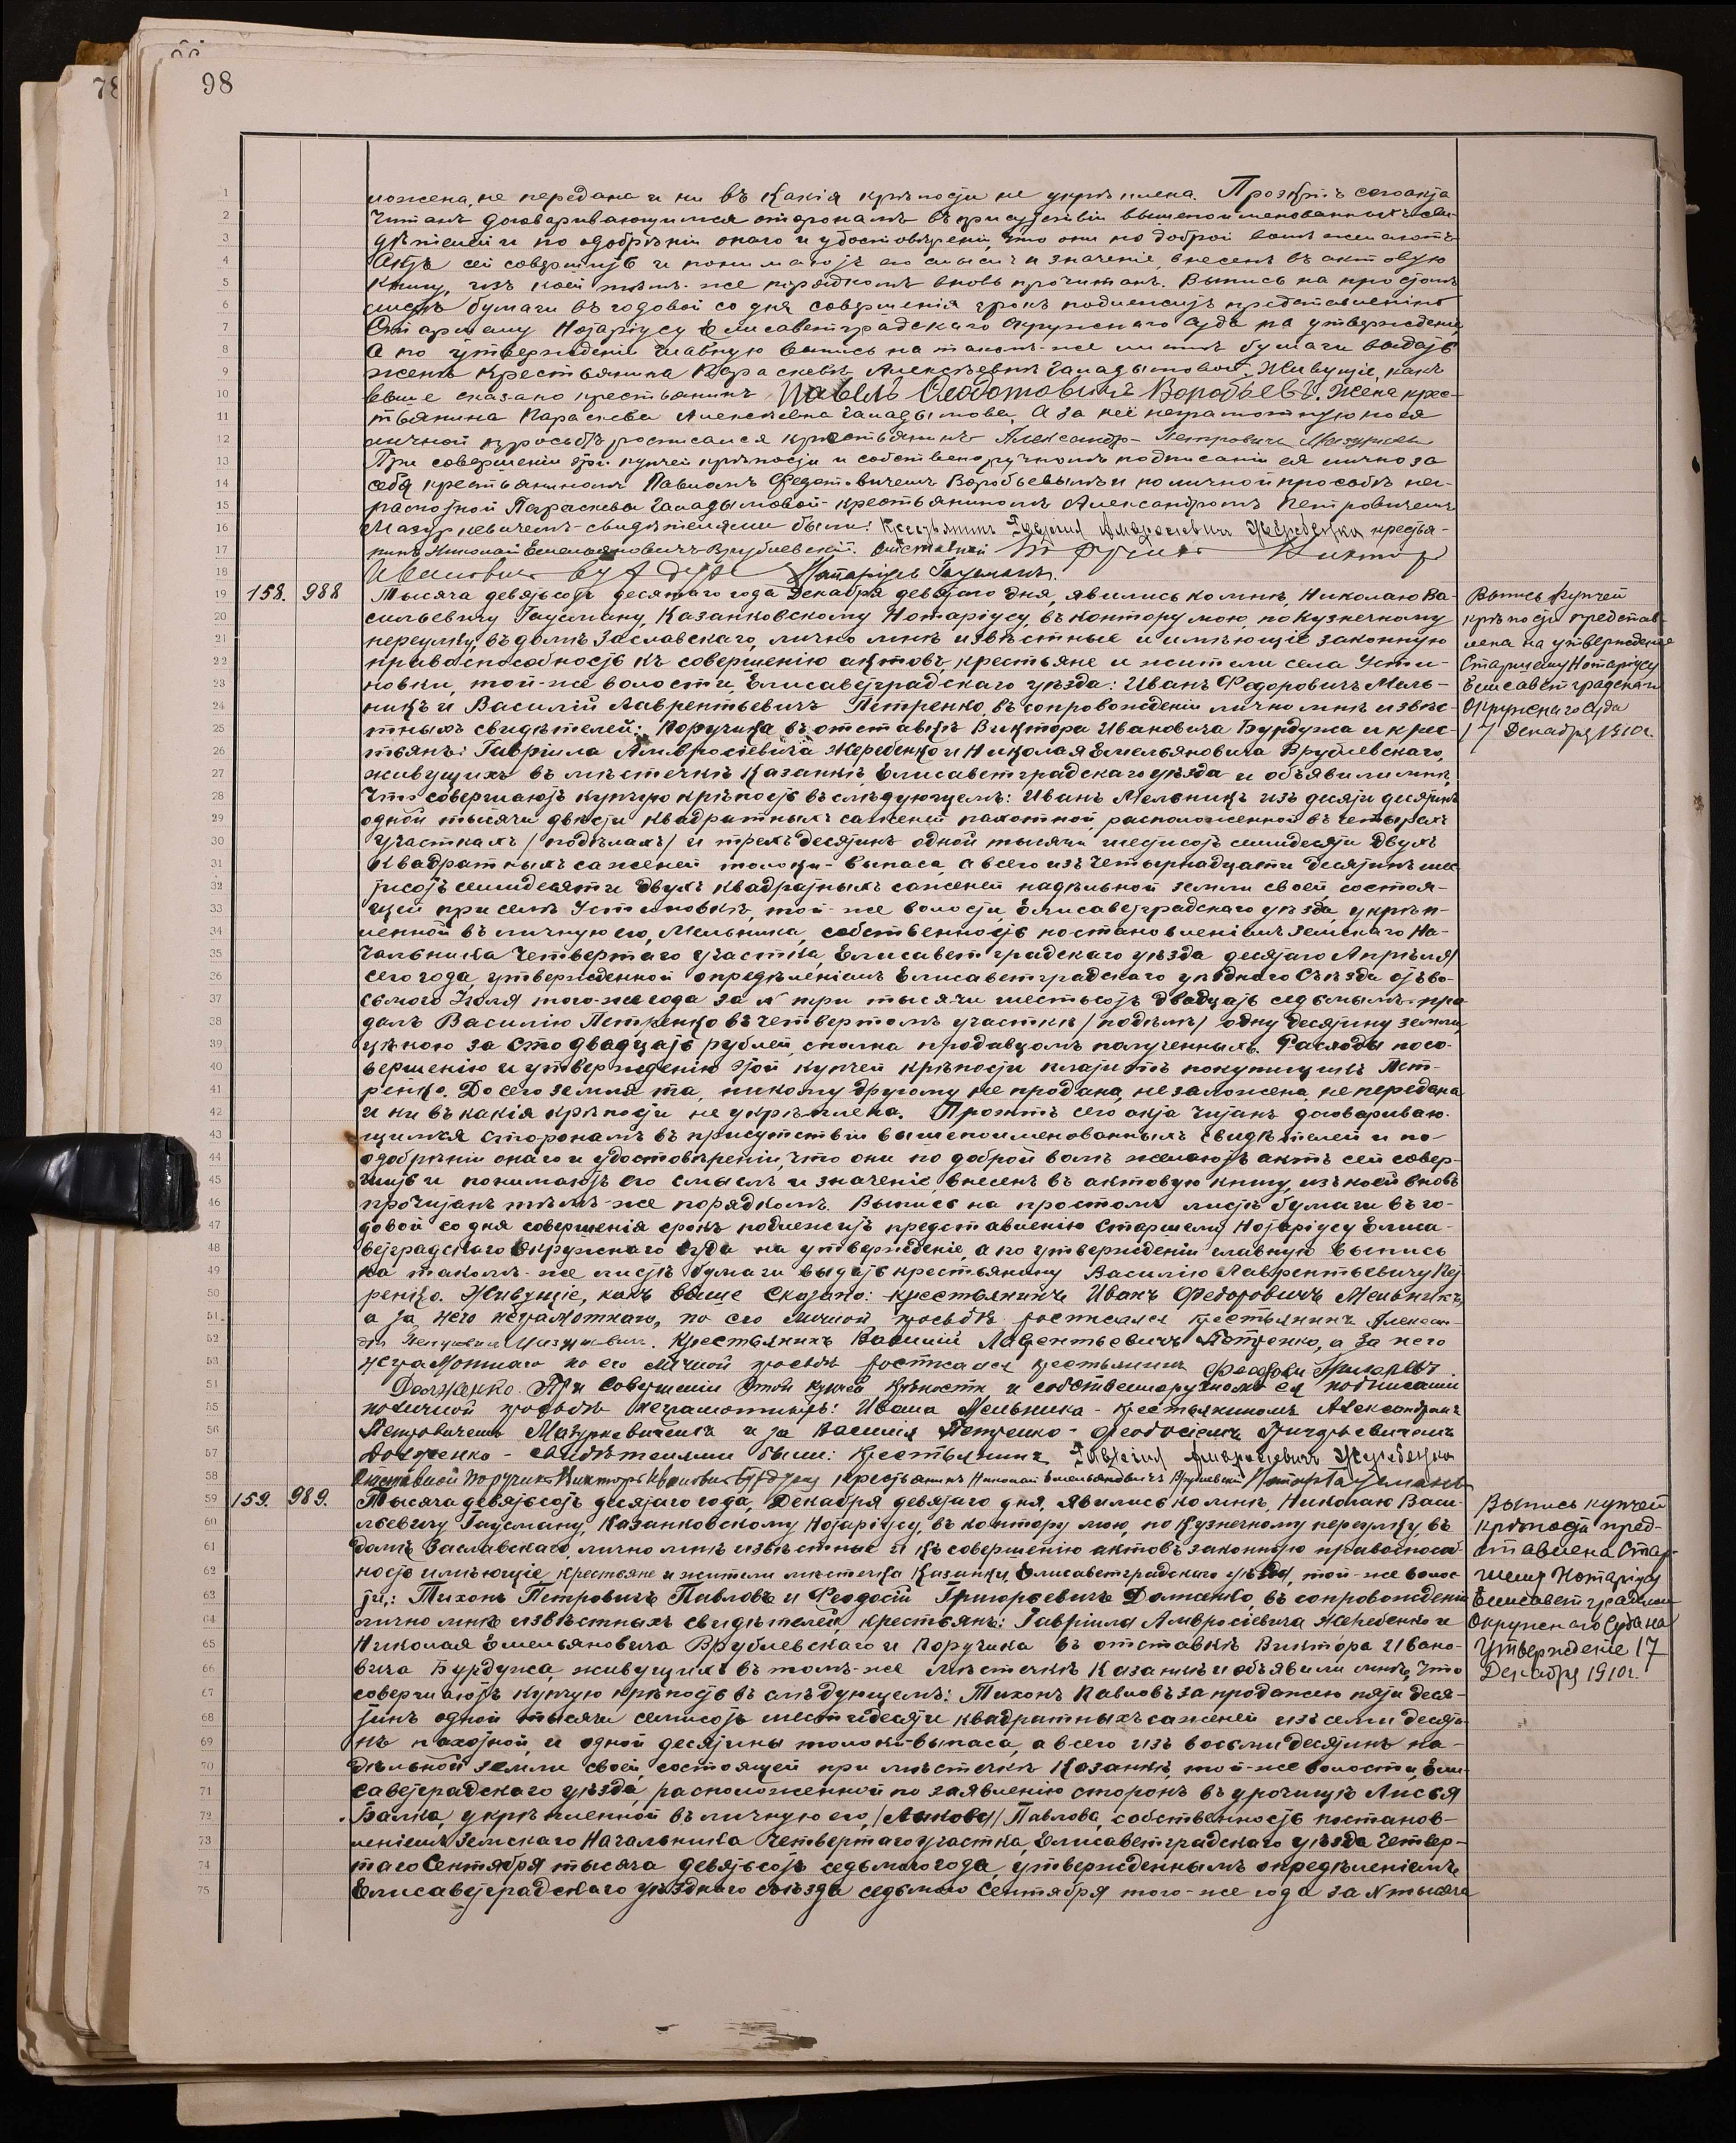 98
ложена, не передана и ни въ какія крѣпости не укрѣплена. Проэктъ сего акта
читанъ договаривающимся сторонамъ въ присутствіи вышепоименованныхъ сви-
дѣтелей и по одобреніи онаго и удостовѣреніи, что они по доброй волѣ желаютъ
актъ сей совершить и понимаютъ его смыслъ и значеніе, внесенъ въ актовую
книгу, изъ коей тѣмъ-же порядкомъ вновь прочитанъ. Выпись на простомъ
листѣ бумаги въ годовой со дня совершенія срокъ подлежитъ представленію
Старшему Нотаріусу Елисаветградскаго Окружнаго Суда на утвержденіе,
а по утвержденіи главную выпись на такомъ-же листѣ бумаги выдать
женѣ крестьянина Параскевѣ Алексѣевнѣ Галадымовой. Живущіе, какъ
выше сказано крестьянинъ Павелъ Феодотовичъ Воробьевъ. Жена крес-
тьянина Параскева Алексѣевна Галадымова, а за неё неграмотную по ея
личной просьбѣ росписался крестьянинъ Александръ Петровичъ Мазуркевичъ
При совершеніи этой купчей крѣпости и собственноручномъ подписаніи ея лично за
себя крестьяниномъ Павломъ Федотовичемъ Воробьевымъ и по личной просьбѣ нег-
рамотной Параскевы Галадымовой- крестьяниномъ Александромъ Петровичемъ
Мазуркевичемъ- свидѣтелями были: Крестьянинъ Гавріилъ Амвросіевичъ Жеребенко крестья-
нинъ Николай Емельяновичъ Врублевскій. отставной Поручикъ Викторъ
Ивановичъ Бурдужа Нотаріусъ Гаусманъ.
158. 988 Тысяча девятьсотъ десятаго года Декабря девятаго дня, явились ко мнѣ, Николаю Ва-
сильевичу Гаусману, Казанковскому Нотаріусу, въ контору мою, по Кузнечному
переулку, въ домѣ Заславскаго, лично мнѣ извѣстные и имѣющіе законную
правоспособность къ совершенію актовъ, крестьяне и жители села Усти-
новки, той-же волости, Елисаветградскаго уѣзда: Иванъ Федоровичъ Мель-
никъ и Василій Лаврентьевичъ Петренко, въ сопровожденіи лично мнѣ извѣс-
тныхъ свидѣтелей: Поручика въ отставкѣ Виктора Ивановича Бурдужа и крес-
тьянъ: Гавріила Амвросіевича Жеребенко и Николая Емельяновича Врублевскаго,
живущихъ въ мѣстечкѣ Казанкѣ, Елисаветградскаго уѣзда и объявили мнѣ,
что совершаютъ купчую крѣпость въ слѣдующемъ: Иванъ Мельникъ изъ десяти десятинъ
одной тысячи двѣсти квадратныхъ саженей пахотной, расположенной въ четырехъ
участкахъ /подѣлахъ/ и трехъ десятинъ одной тысячи шестисотъ семидесяти двухъ
квадратныхъ саженей толоки- выпаса, а всего изъ четырнадцати десятинъ шес-
тисотъ семидесяти двухъ квадратныхъ саженей надѣльной земли своей состоя-
щей при селѣ Устиновкѣ, той-же волости, Елисаветградскаго уѣзда, укрѣп-
ленной въ личную его, Мельника, собственность постановленіемъ Земскаго На-
чальника Четвертаго участка, Елисаветградскаго уѣзда десятаго Апрѣля
сего года, утвержденной опредѣленіемъ Елисаветградскаго уѣзднаго Съѣзда отъ во-
сьмого Іюля того-же года за № три тысячи шестьсотъ двадцать седьмымъ- про-
далъ Василію Петренко въ четвертомъ участкѣ /подѣлѣ/ одну десятину земли
цѣною за сто двадцать рублей, сполна продавцомъ полученныхъ. Расходы по со-
вершенію и утвержденію этой купчей крѣпости платитъ покупщикъ Пет-
ренко. До сего земля та, никому другому не продана, не заложена, не передана
и ни въ какія крѣпости не укрѣплена. Проэктъ сего акта читанъ договариваю-
щимся сторонамъ въ присутствіи вышепоименованныхъ свидѣтелей и по-
одобреніи онаго и удостовѣреніи, что они по доброй волѣ желаютъ актъ сей совер-
шить и понимаютъ его смыслъ и значеніе, внесенъ въ актовую книгу, изъ коей вновь
прочитанъ тѣмъ-же порядкомъ. Выпись на простомъ листѣ бумаги въ го-
довой со дня совершенія срокъ подлежитъ представленію Старшему Нотаріусу Елиса-
ветградскаго Окружнаго Суда на утвержденіе, а по утвержденіи главную выпись
на такомъ-же листѣ бумаги выдать крестьянину Василію Лаврентьевичу Пет-
ренко. Живущіе, какъ выше сказано: крестьянинъ Иванъ Федоровичъ Мельникъ,
а за него неграмотнаго, по его личной просьбѣ росписался крестьянинъ Алексан-
дръ Петровичъ Мазуркевичъ. Крестьянинъ Василій Лаврентьевичъ Петренко, а за него
неграмотнаго по его личной просьбѣ росписался крестьянинъ Феодосій Григорьевъ
Долженко. При совершеніи этой купчей крѣпости и собственноручномъ ея подписаніи
по личной просьбѣ неграмотныхъ: Ивана Мельника - крестьяниномъ Александромъ
Петровичемъ Мазуркевичемъ и за Василія Петренко - Феодосіемъ Григорьевичемъ
Долженко - свидѣтелями были: крестьянинъ Гавріилъ Амвросіевичъ Жеребенко
отставной поручикъ Викторъ Ивановичъ Бурдужа крестьянинъ Николай Емельяновичъ Врублевскій Нотар. Гаусманъ
159. 989. Тысяча девятьсотъ десятаго года, Декабря девятаго дня, явились ко мнѣ, Николаю Васи-
льевичу Гаусману, Казанковскому Нотаріусу, въ контору мою, по Кузнечному переулку, въ
домѣ Заславскаго, лично мнѣ извѣстные и къ совершенію актовъ законную правоспособ-
ность имѣющіе, крестьяне и жители мѣстечка Казанки, Елисаветградскаго уѣзда, той-же волос-
ти,: Тихонъ Петровичъ Павловъ и Феодосій Григорьевичъ Долженко, въ сопровожденіи
лично мнѣ извѣстныхъ свидѣтелей, крестьянъ: Гавріила Амвросіевича Жеребенко и
Николая Емельяновича Врублевскаго и Поручика въ отставкѣ Виктора Ивано-
вича Бурдужа, живущихъ въ томъ-же мѣстечкѣ Казанкѣ и объявили мнѣ, что
совершаютъ купчую крѣпость въ слѣдующемъ: Тихонъ Павловъ за продажею пяти деся-
тинъ одной тысячи семисотъ шестидесяти квадратныхъ саженей изъ семи десяти-
нъ пахотной, и одной десятины толоки-выпаса, а всего изъ восьми десятинъ на-
дѣльной земли своей, состоящей при мѣстечкѣ Казанкѣ, той-же волости, Ели-
саветградскаго уѣзда, расположенной по заявленію сторонъ въ урочищѣ Лисья
Балка, укрѣпленной въ личную его, Павлова, собственность постанов-
леніемъ Земскаго Начальника Четвертаго участка, Елисаветградскаго уѣзда четвер-
таго Сентября тысяча девятьсотъ седьмого года, утвержденнымъ опредѣленіемъ
Елисаветградскаго уѣзднаго съѣзда седьмого Сентября того-же года за № тысяча
Выпись купчей
крѣпости представ-
лена на утвержденіе
Старшему Нотаріусу
Елисаветградскаго
Окружнаго Суда
17 Декабря 1910г.
Выпись купчей
крѣпости пред-
ставлена Стар-
шему Нотаріусу
Елисаветградскаго
Окружнаго Суда на
утвержденіе 17
Декабря 1910г.